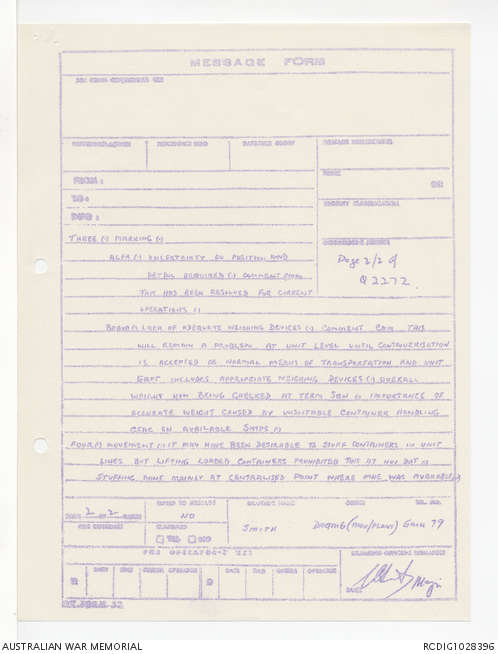 MESSAGE FORM
FROM :
TO :
INFO :
Page 2/2 of
Q2272.
THREE (.) MARKING (.)
ALFA (.) UNCERTAINTY ON POSITION AND
DETAIL REQUIRED (.) COMMENT
THIS HAS BEEN RESOLVED FOR CURRENT
OPERATIONS (.)
BRAVO (.) LACK OF ADEQUATE WEIGHING DEVICES (.) COMMENT CMM THIS
WILL REMAIN A PROBLEM AT UNIT LEVEL UNTIL CONTAINERISATION
IS ACCEPTED AS NORMAL MEANS OF TRANSPORTATION AND UNIT
EQPT INCLUDES APPROPRIATE WEIGHING DEVICES (.) OVERALL
WEIGHT NOW BEING CHECKED AT TERM SQN (.) IMPORTANCE OF
ACCURATE WEIGHT CAUSED BY UNSUITABLE CONTAINER HANDLING
GEAR ON AVAILABLE SHIPS (.)
FOUR (.) MOVEMENT (.) IT MAY HAVE BEEN DESIRABLE TO STUFF CONTAINERS IN UNIT
LINES BUT LIFTING LOADED CONTAINERS PROHIBITED THIS AT NUI DAT (.)
STUFFING DONE MAINLY AT CENTRALISED POINT WHERE MHE WAS AVAILABLE (.)
PAGE 2 OF 2 PAGES
NO
SMITH
79
YES NO
Maj
AUSTRALIAN WAR MEMORIAL
RCDIG1028396